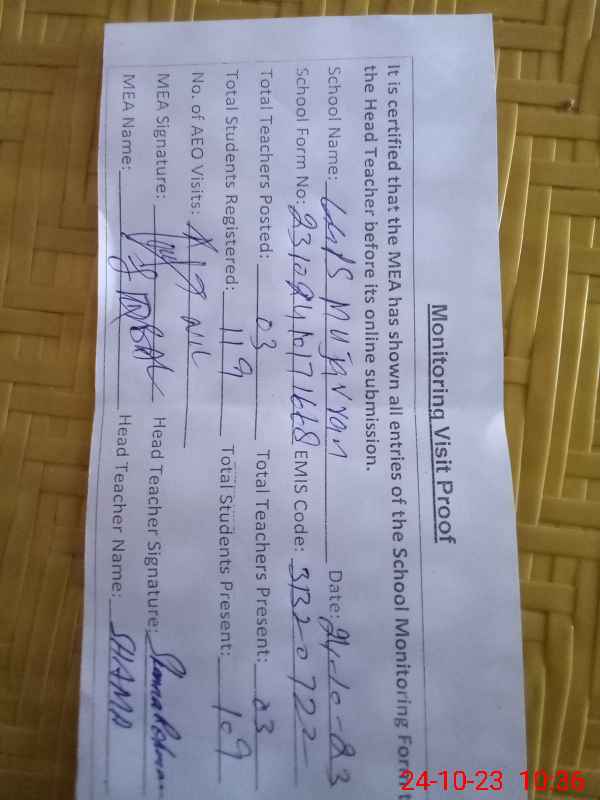 Monitoring Visit Proof
It is certified that the MEA has shown all entries of the School Monitoring Form t
the Head Teacher before its online submission.
School Name: MUJAVRAN Date: 24-10-23
School Form No: EMIS Code: 31320722
Total Teachers Posted: 03 Total Teachers Present: 03
Total Students Registered: 119 Total Students Present: 109
No. of AEO Visits: NIL
MEA Signature: Head Teacher Signature:
MEA Name: IQBAL Head Teacher Name: SHAMA
24-10-23 10:36